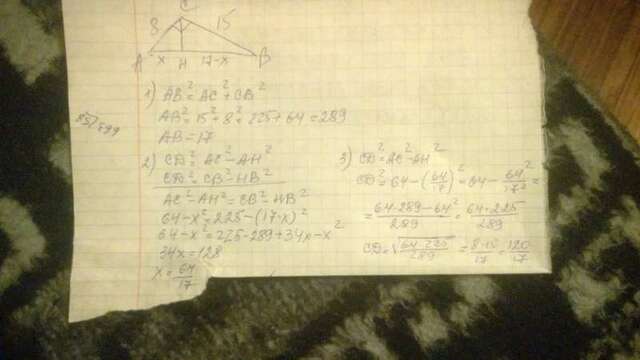 C
8 15
A x H 17-x B
1) AB² = AC² + CB²
AB² = 15² + 8² = 225 + 64 = 289
AB = 17
2) CD² = AC² - AH²
CD² = CB² - HB²
AC² - AH² = CB² - HB²
64 - x² = 225 - (17-x)²
64 - x² = 225 - 289 + 34x - x²
34x = 128
x = 64/17
3) CD² = AC² - AH²
CD² = 64 - (64/17)² = 64 - 64²/17² =
= (64·289 - 64²)/289 = 64·225/289
CD = √(64·225/289) = 8·15/17 = 120/17